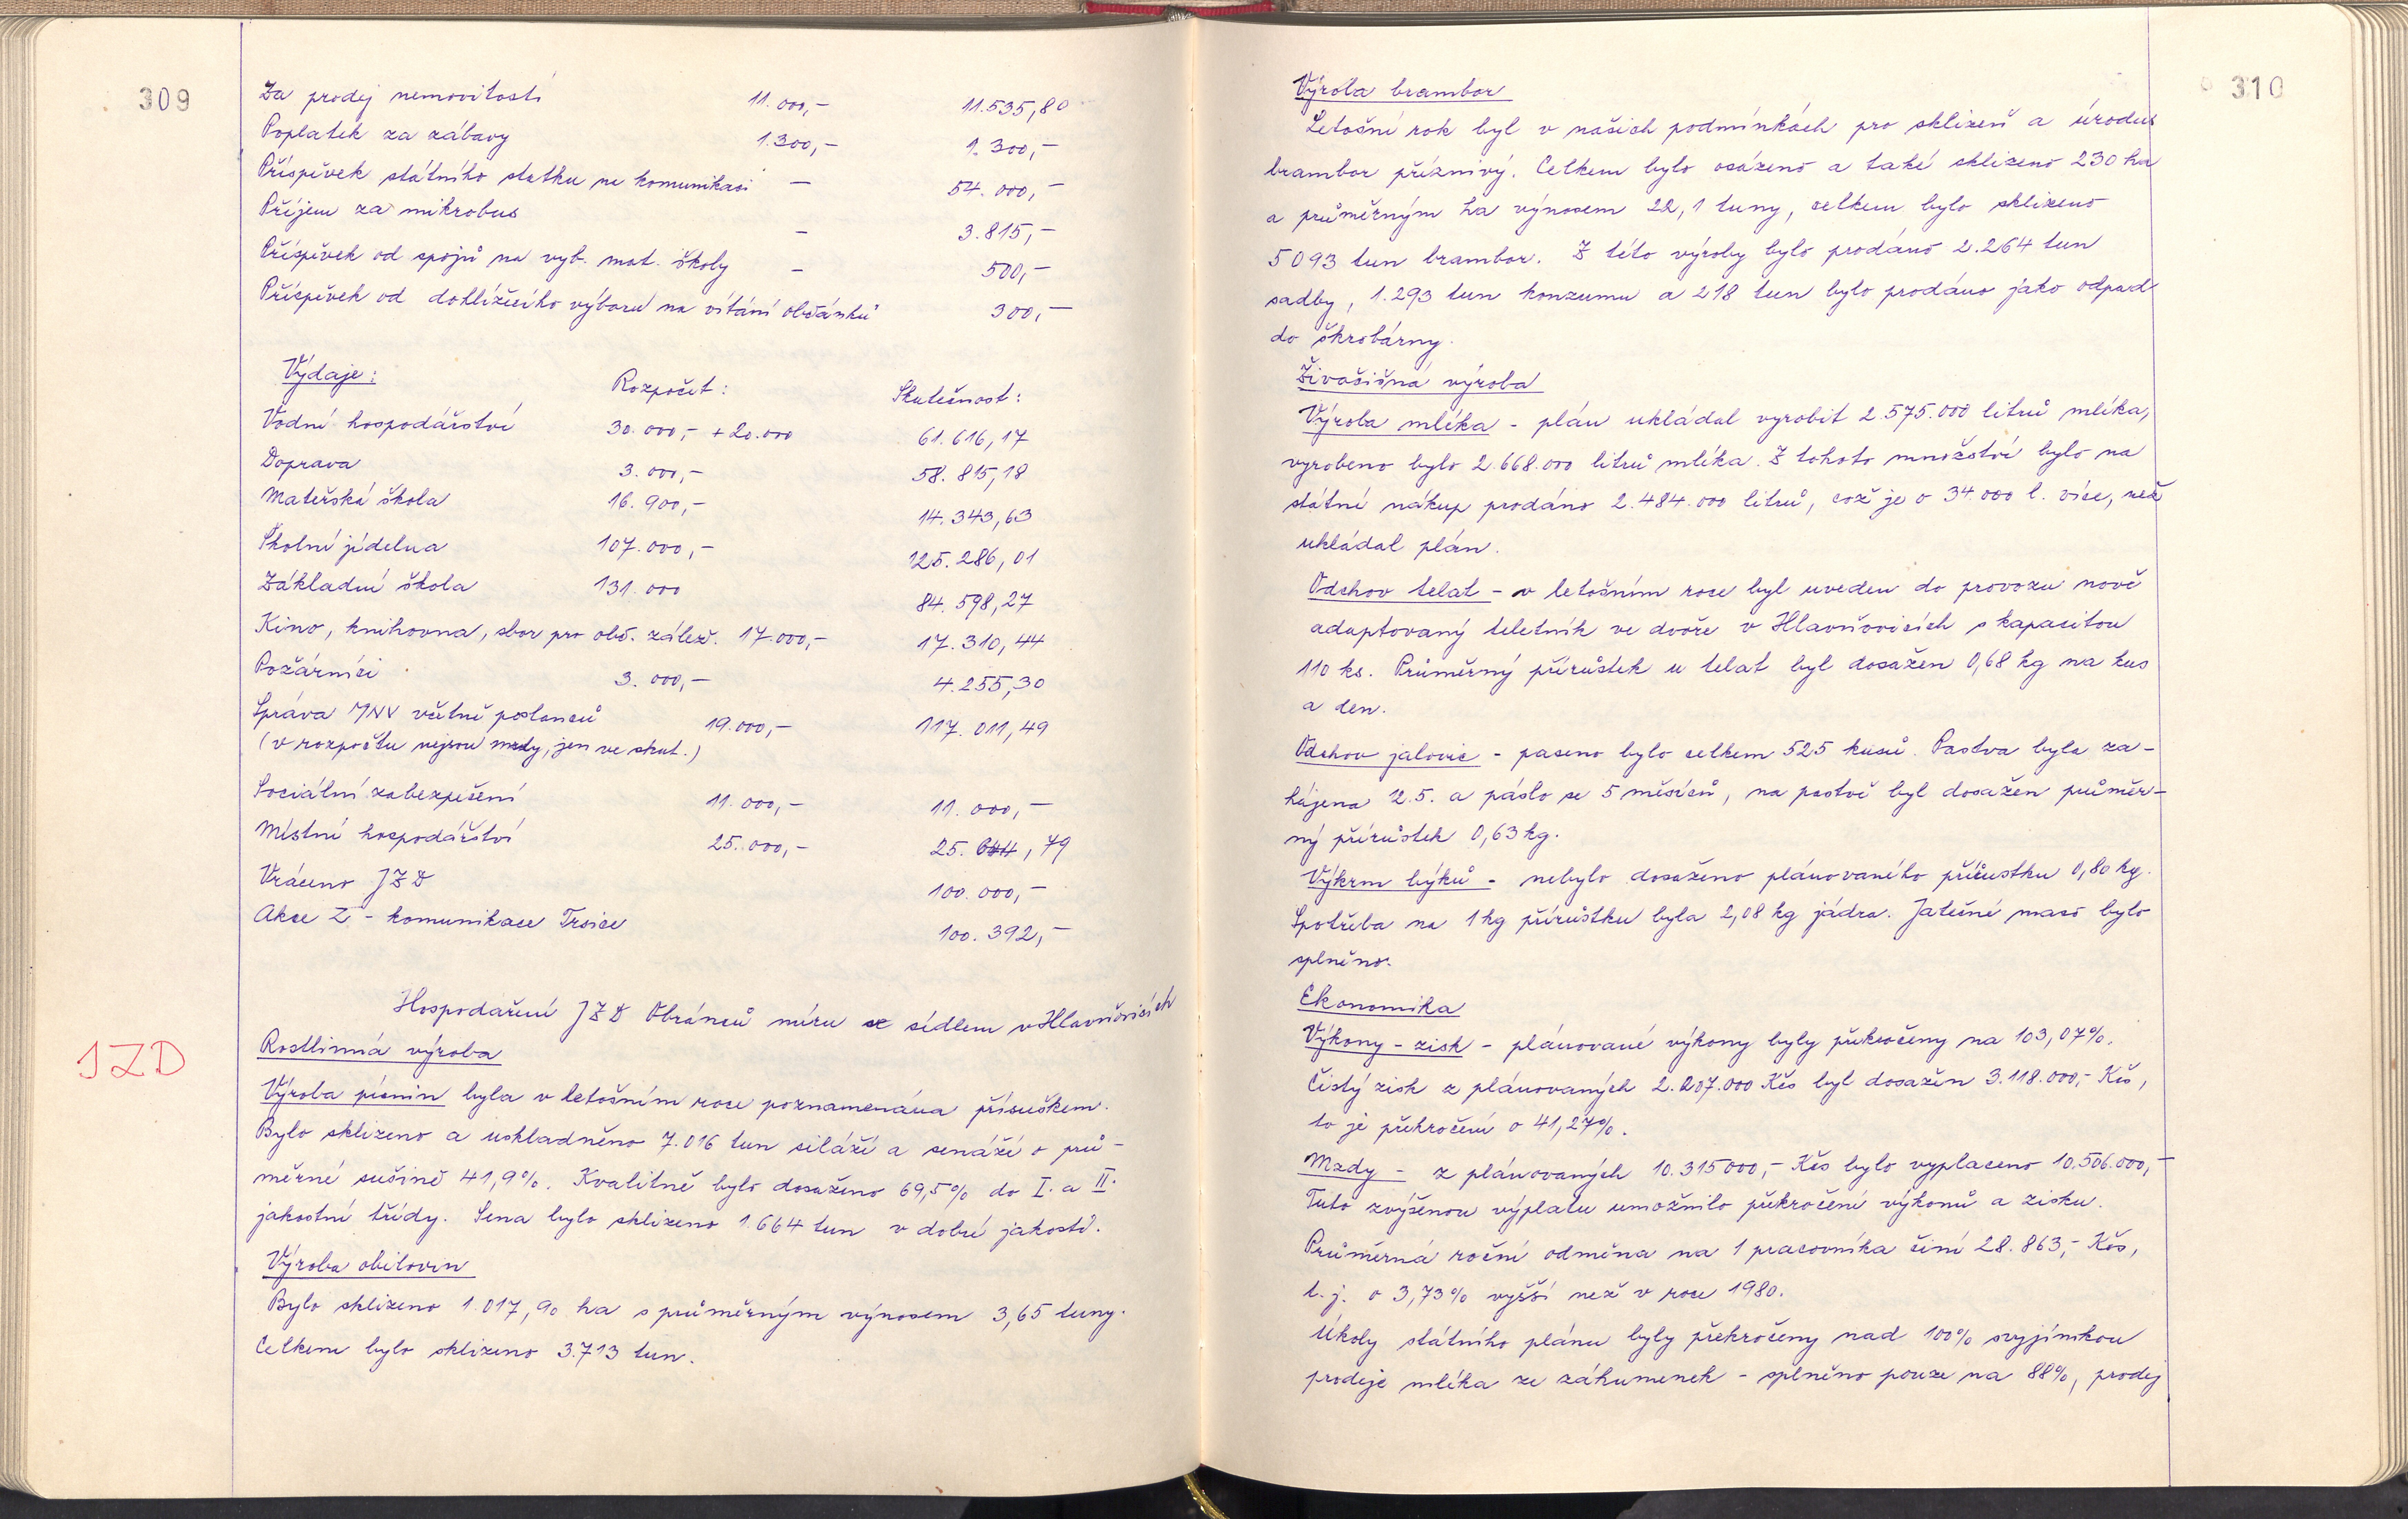 309
Za prodej nemovitostí 11.000,- 11.535,80
Poplatek za zábavy 1.300,- 1.300,-
Příspěvek státního statku na komunikaci - 54.000,-
Příjem za mikrobus - 3.815,-
Příspěvek od spojů na vyb. mat. školy - 500,-
Příspěvek od dohlížecího výboru na vítání občánků 300,-
Výdaje: Rozpočet: Skutečnost:
Vodní hospodářství 30.000,- +20.000 61.616,17
Doprava 3.000,- 58.815,18
Mateřská škola 16.900,- 14.343,63
Školní jídelna 107.000,- 125.286,01
Základní škola 131.000 84.598,27
Kino, knihovna, sbor pro obč. zálež. 17.000,- 17.310,44
Požárníci 3.000,- 4.255,30
Správa MNV včetně poslanců 19.000,- 117.011,49
(v rozpočtu nejsou mzdy, jen ve skut.)
Sociální zabezpečení 11.000,- 11.000,-
Místní hospodářství 25.000,- 25.644,79
Vráceno JZD 100.000,-
Akce Z - komunikace Trsice 100.392,-
Hospodaření JZD Obránců míru se sídlem v Hlavňovicích
JZD
Rostlinná výroba
Výroba pícnin byla v letošním roce poznamenána přísuškem.
Bylo sklizeno a uskladněno 7.016 tun siláží a senáží o prů-
měrné sušině 41,9%. Kvalitně bylo dosaženo 69,5% do I. a II.
jakostní třídy. Sena bylo sklizeno 1.664 tun v dobré jakosti.
Výroba obilovin
Bylo sklizeno 1.017,90 ha s průměrným výnosem 3,65 tuny.
Celkem bylo sklizeno 3.713 tun.
310
Výroba brambor
Letošní rok byl v našich podmínkách pro sklizeň a úrodu
brambor příznivý. Celkem bylo osázeno a také sklizeno 230 ha
a průměrným ha výnosem 22,1 tuny, celkem bylo sklizeno
5093 tun brambor. Z této výroby bylo prodáno 2.264 tun
sadby, 1.293 tun konzumu a 218 tun bylo prodáno jako odpad
do škrobárny.
Živočišná výroba
Výroba mléka - plán ukládal vyrobit 2.575.000 litrů mléka,
vyrobeno bylo 2.668.000 litrů mléka. Z tohoto množství bylo na
státní nákup prodáno 2.484.000 litrů, což je o 34.000 l. více, než
ukládal plán.
Odchov telat - v letošním roce byl uveden do provozu nově
adaptovaný teletník ve dvoře v Hlavňovicích s kapacitou
110 ks. Průměrný přírůstek u telat byl dosažen 0,68 kg na kus
a den.
Odchov jalovic - paseno bylo celkem 525 kusů. Pastva byla za-
hájena 12.5. a páslo se 5 měsíců, na pastvě byl dosažen průměr-
ný přírůstek 0,63 kg.
Výkrm býků - nebylo dosaženo plánovaného přírustku 0,80 kg.
Spotřeba na 1 kg přírůstku byla 2,08 kg jádra. Jatečné maso bylo
splněno.
Ekonomika
Výkony - zisk - plánované výkony byly překročeny na 103,07%.
Čistý zisk z plánovaných 2.207.000 Kčs byl dosažen 3.118.000,- Kčs,
to je překročení o 41,27%.
Mzdy - z plánovaných 10.315000,- Kčs bylo vyplaceno 10.506.000,-
Tuto zvýšenou výplatu umožnilo překročení výkonů a zisku.
Průměrná roční odměna na 1 pracovníka činí 28.863,- Kčs,
t.j. o 3,73% vyšší než v roce 1980.
Úkoly státního plánu byly překročeny nad 100% svyjímkou
prodeje mléka ze záhumenek - splněno pouze na 88%, prodej